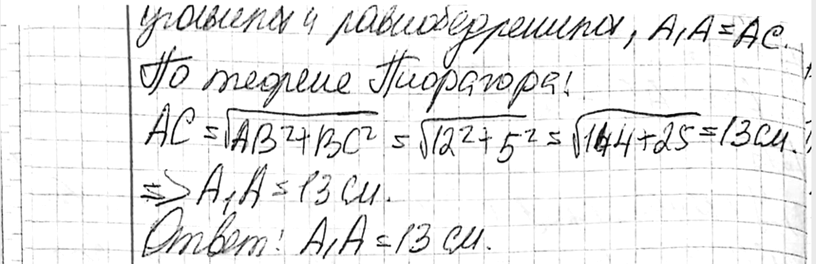 угольный равнобедренный, A₁A = AC.
По теореме Пифагора:
AC = √AB²+BC² = √12²+5² = √144+25 = 13 см.
=> A₁A = 13 см.
Ответ: A₁A = 13 см.